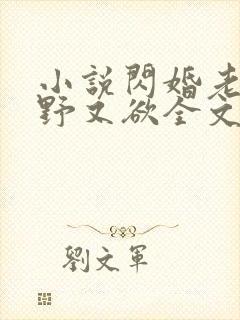 小説閃婚老
野又欲全文
劉文軍